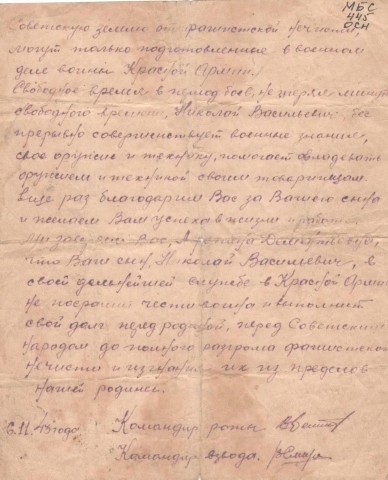 МБС
445
ОСН
Советскую землю от фашистской нечисти,
могут только подготовленные в военном
деле воины Красной Армии.
Свободное время в период боев, не теряя минуты
свободного времени, Николай Васильевич, бес
прерывно совершенствует военные знания,
свое оружие и технику, помогает овладевать
оружием и техникой своим товарищам.
Еще раз благодарим Вас за Вашего сына
и желаем Вам успеха в жизни и работе
Вас,
что Ваш сын, Николай Васильевич, в
своей дальнейшей службе в Красной Армии
не посрамит чести воина и выполнит
свой долг перед родиной, перед Советским
народом до полного разгрома фашистской
нечисти и изгнания их из пределов
нашей родины.
6.11.43 года. Командир роты
Командир взвода